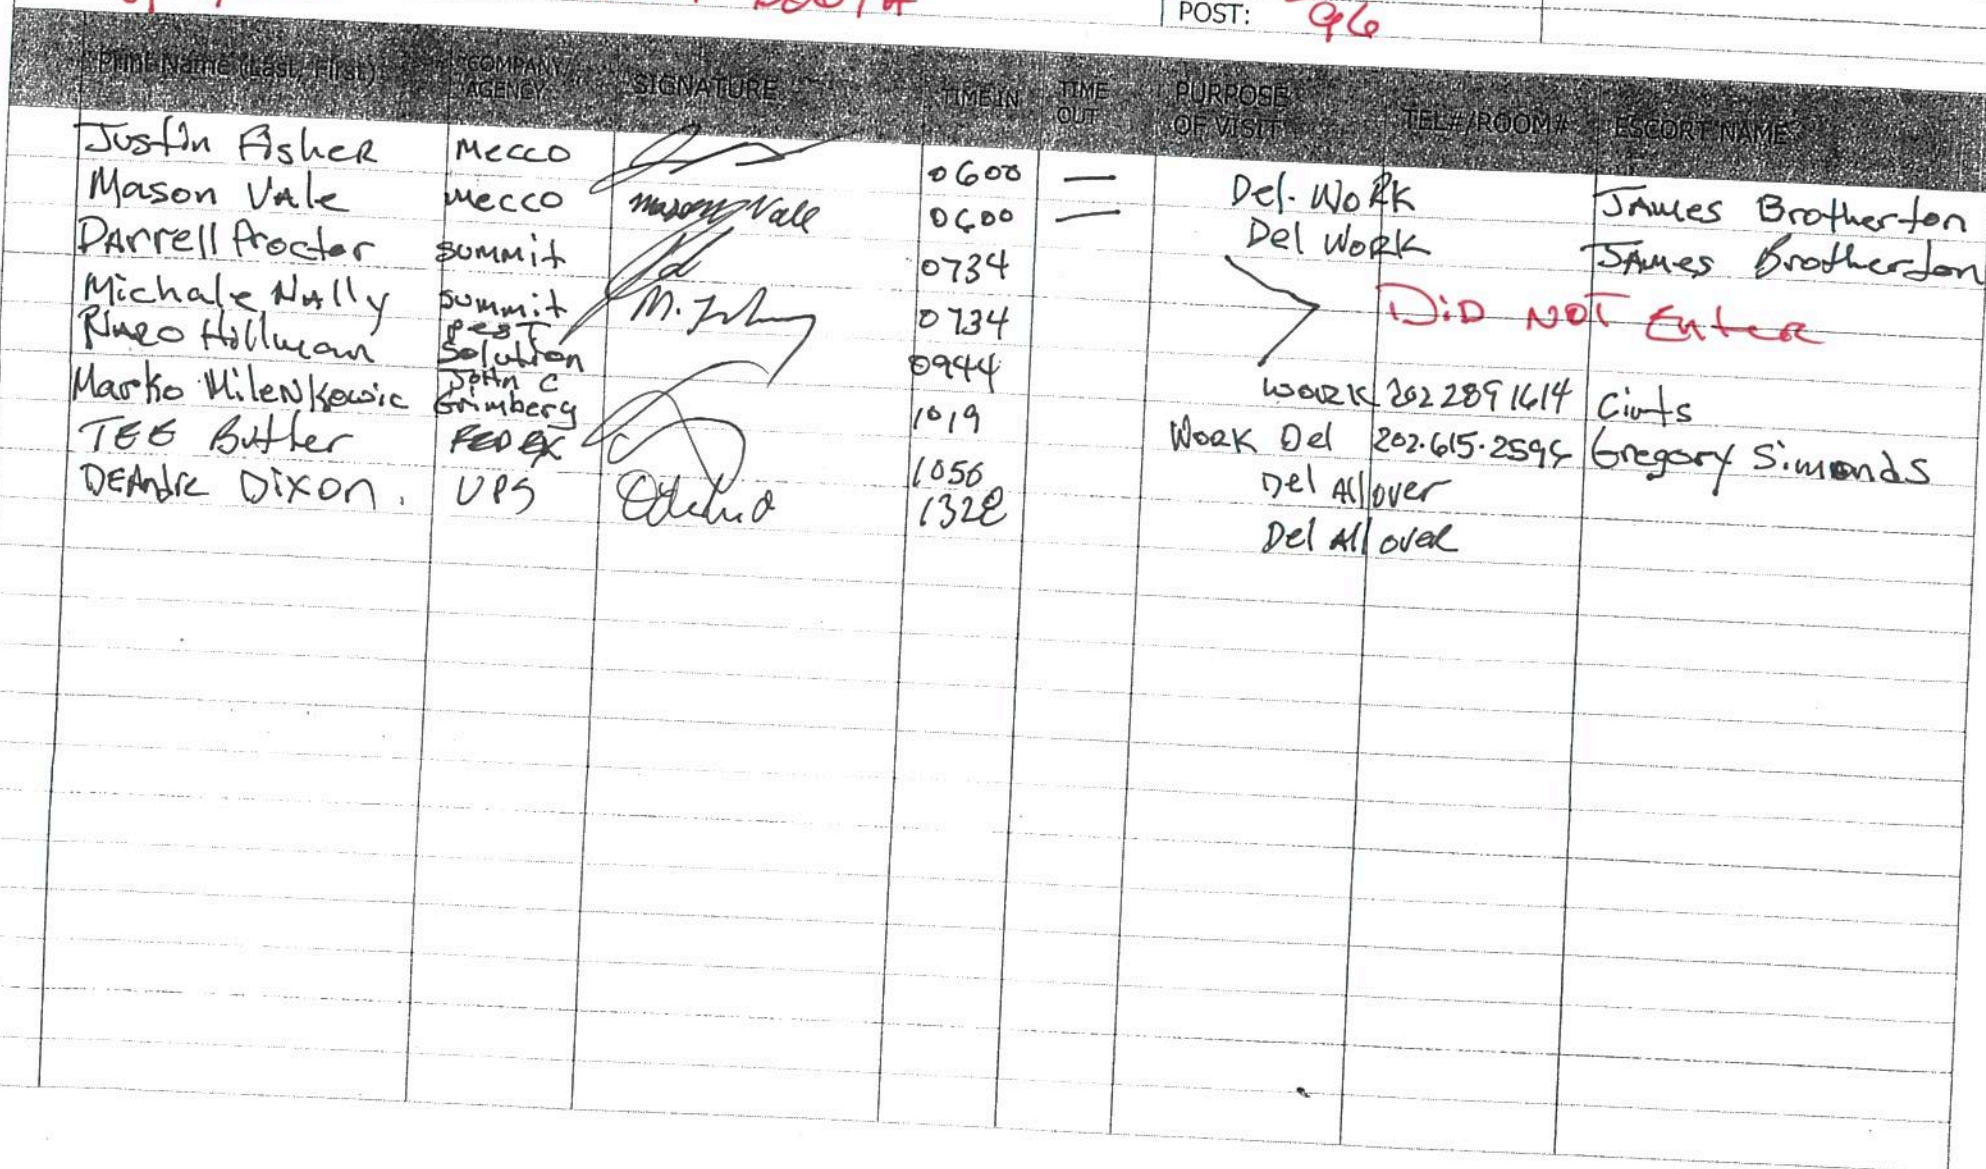 BOOTH
POST: 96
Print Name (Last, First) COMPANY/ AGENCY SIGNATURE TIME IN TIME OUT PURPOSE OF VISIT TEL#/ROOM# ESCORT NAME
Justin Fisher Mecco 0600 — Del. Work James Brotherton
Mason Vale Mecco Mason Vale 0600 — Del Work James Brotherton
Darrell Proctor Summit 0734
Michale Nally Summit 0734 DiD NOT Enter
Hillman Pest Solution 0944 Work 202 289 1614
Marko Milenkovic John C Grimberg 1019 Work Del 202.615.2594 Gregory Simonds
TEE Butler FEDEX 1050 Del All over
DEAndre Dixon. UPS 1328 Del All over